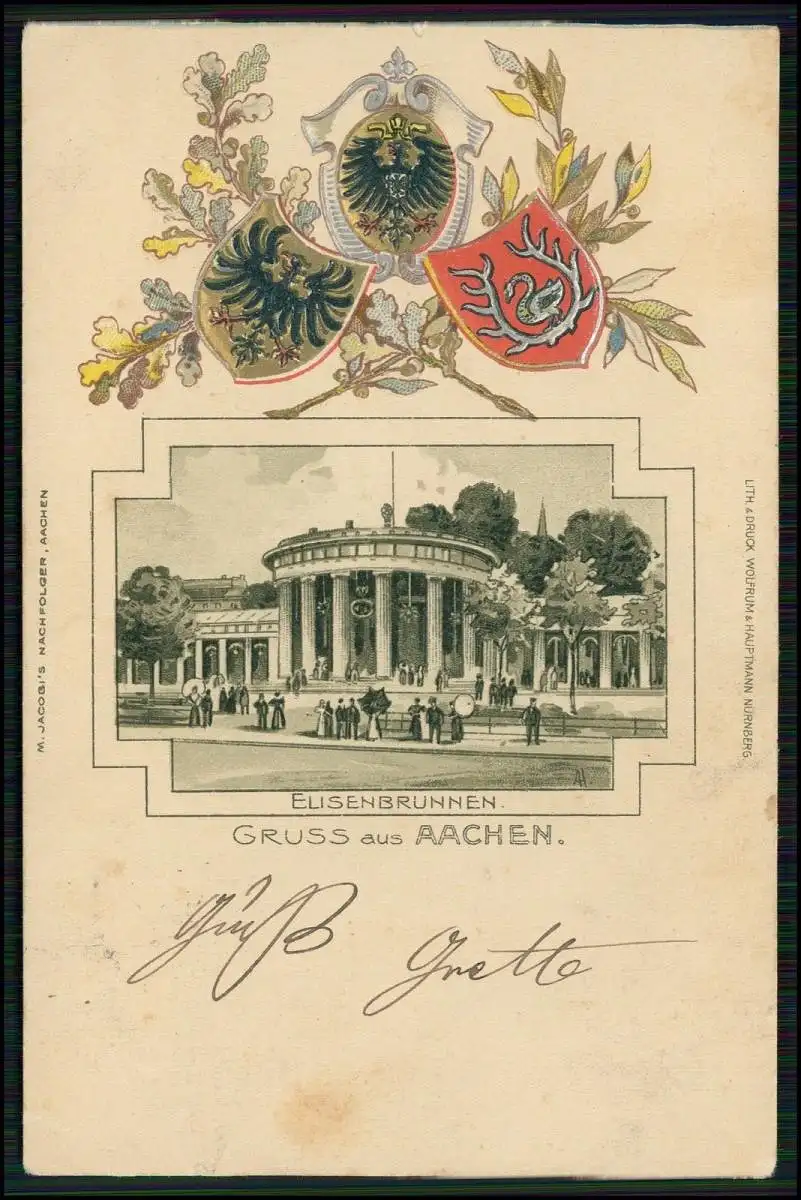 M. JACOBI'S NACHFOLGER, AACHEN
LITH. & DRUCK WOLFRUM & HAUPTMANN NÜRNBERG
AH.
ELISENBRUNNEN.
GRUSS aus AACHEN.
Gruß
Grette